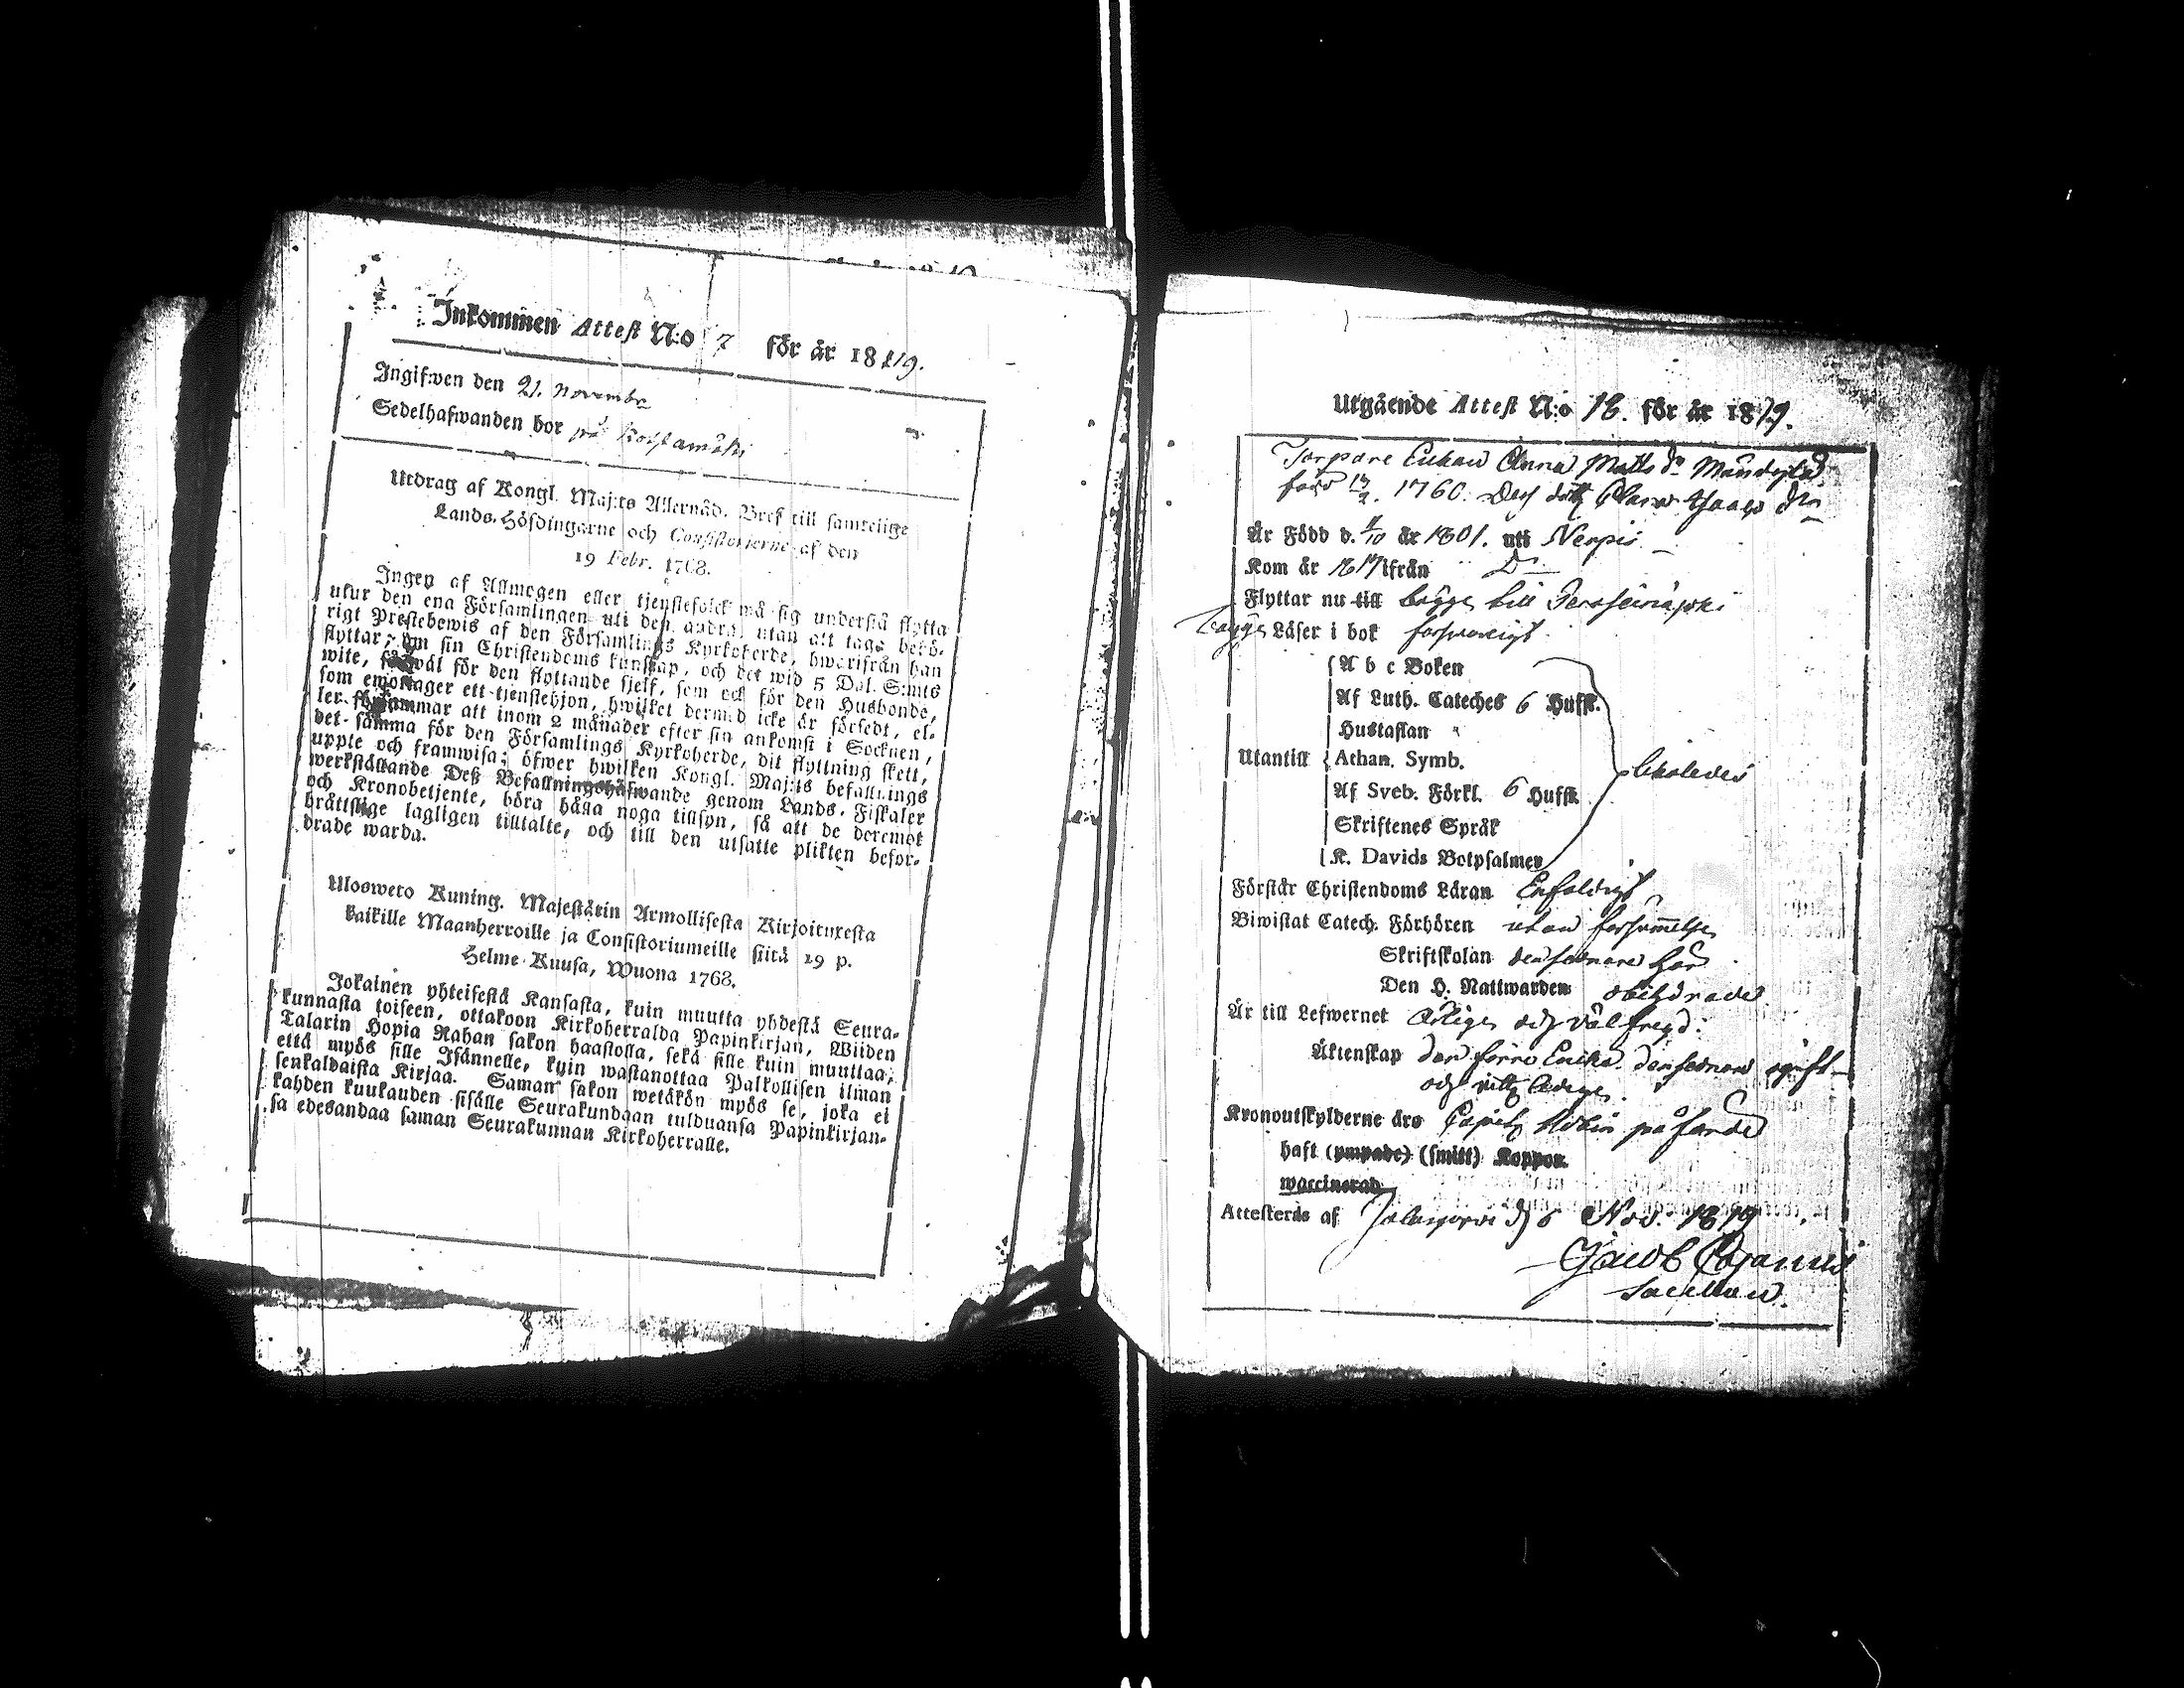 Inkommen Attest N:o 7 för år 1819.
Ingifwen den 21. novembr
Sedelhafwanden bor på
Utdrag af Kongl. Maj:ts Allernåd. Bref till samtelige
Lands-Höfdingarne och Consistorierne af den
19 Febr. 1768.
Ingen af Allmogen eller tjenstefolck må sig understå flytta
utur den ena Församlingen uti den andra, utan att taga behö-
rigt Prestebewis af den Församlings Kyrkoherde, hwarifrån han
flyttar, om sin Christendoms kunskap, och det wid 5 Dal. S:mts
wite, såwäl för den flyttande sjelf, som ock för den Husbonde,
som emottager ett tjenstehjon, hwilket dermed icke är försedt, el-
ler försummar att inom 2 månader efter sin ankomst i Socknen,
det samma för den Församlings Kyrkoherde, dit flyttning skett,
uppte och framwisa; öfwer hwilken Kongl. Maj:ts befallnings
werkställande Deß Befallningshafwande genom Lands-Fiskaler
och Kronobetjente, böra hålla noga tillsyn, så att de deremot
bråttslige lagligen tilltalte, och till den utsatte plikten befor-
drade warda.
Ulosweto Kuning. Majestätin Armollisesta Kirjoituxesta
kaikille Maanherroille ja Consistoriumeille siitä 19 p.
Helme-Kuusa, Wuona 1768.
Jokainen yhteisestä Kansasta, kuin muutta yhdestä Seura-
kunnasta toiseen, ottakoon Kirkoherralda Papinkirjan, Wiiden
Talarin Hopia Rahan sakon haastolla, sekä sille kuin muuttaa,
että myös sille Isännelle, kuin wastanottaa Palkollisen ilman
senkaldaista Kirjaa. Saman sakon wetäkön myös se, joka ei
kahden kuukauden sisälle Seurakundaan tulduansa Papinkirjan-
sa edesandaa saman Seurakunnan Kirkoherralle.
Utgående Attest N:o 18. för år 1819.
Torpare Enkan Anna Matts dr
född 1760. Des dott Isaacs dr
Är Född d. 4/10 år 1801. uti Nerpis
Kom år 1817 ifrån Do
Flyttar nu till bägge till Peräseinäjoki
bägge Läser i bok försvarligt
A b c Boken
Af Luth. Cateches 6 Hufst.
Hustaflan
Utantill Athan. Symb.
Af Sveb. Förkl. 6 Hufst.
Skriftenes Språk
K. Davids Botpsalmer
Förstår Christendoms Läran Enfaldigt
Biwistat Catech. Förhören utan försummelse
Skriftskolan den sednare här
Den H. Nattwarden obehindrade
Är till Lefwernet ärliga och välfrejd.
Äktenskap den förra Enka. den sednare ogift
och ledige.
Kronoutskylderne äro på
haft (ympade) (smitt) Koppor.
waccinerad
Attesteras af Jalasjervi d 6 Nov. 1819
Jacob Cajanus
Sacellan.